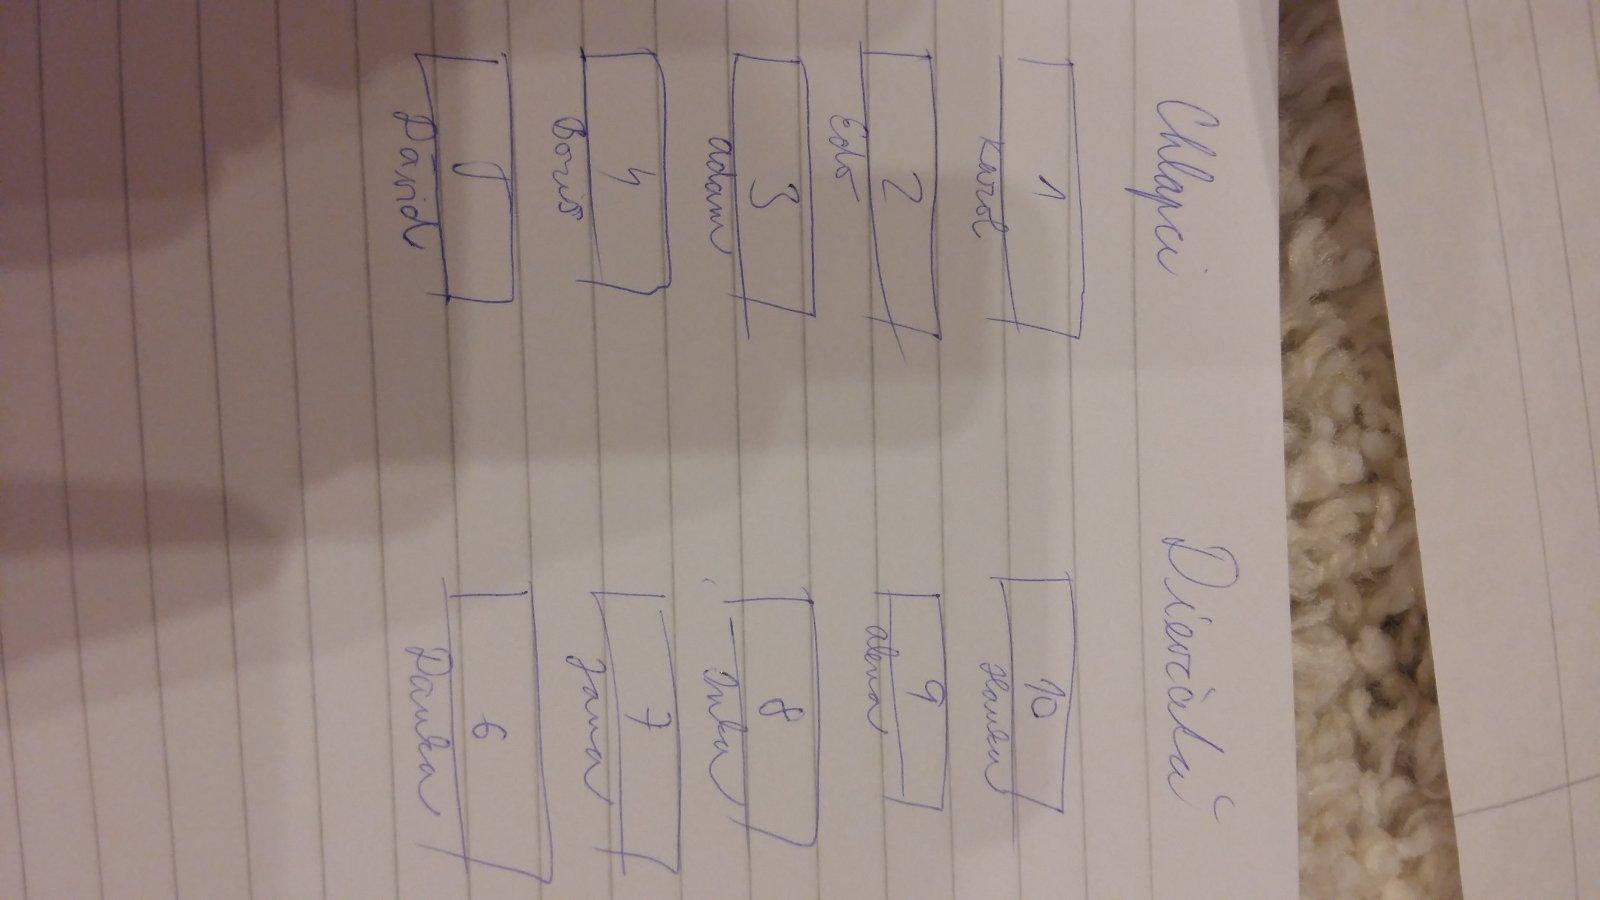 Chlapci Dievčatá
1 10
Karol Hanka
2 9
Edo alena
3 8
adam - Inka
4 7
Boris Jana
5 6
Dávid Danka